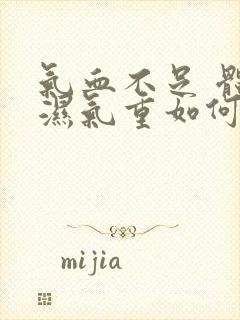 氣血不足 體
濕氣重如何
mijia